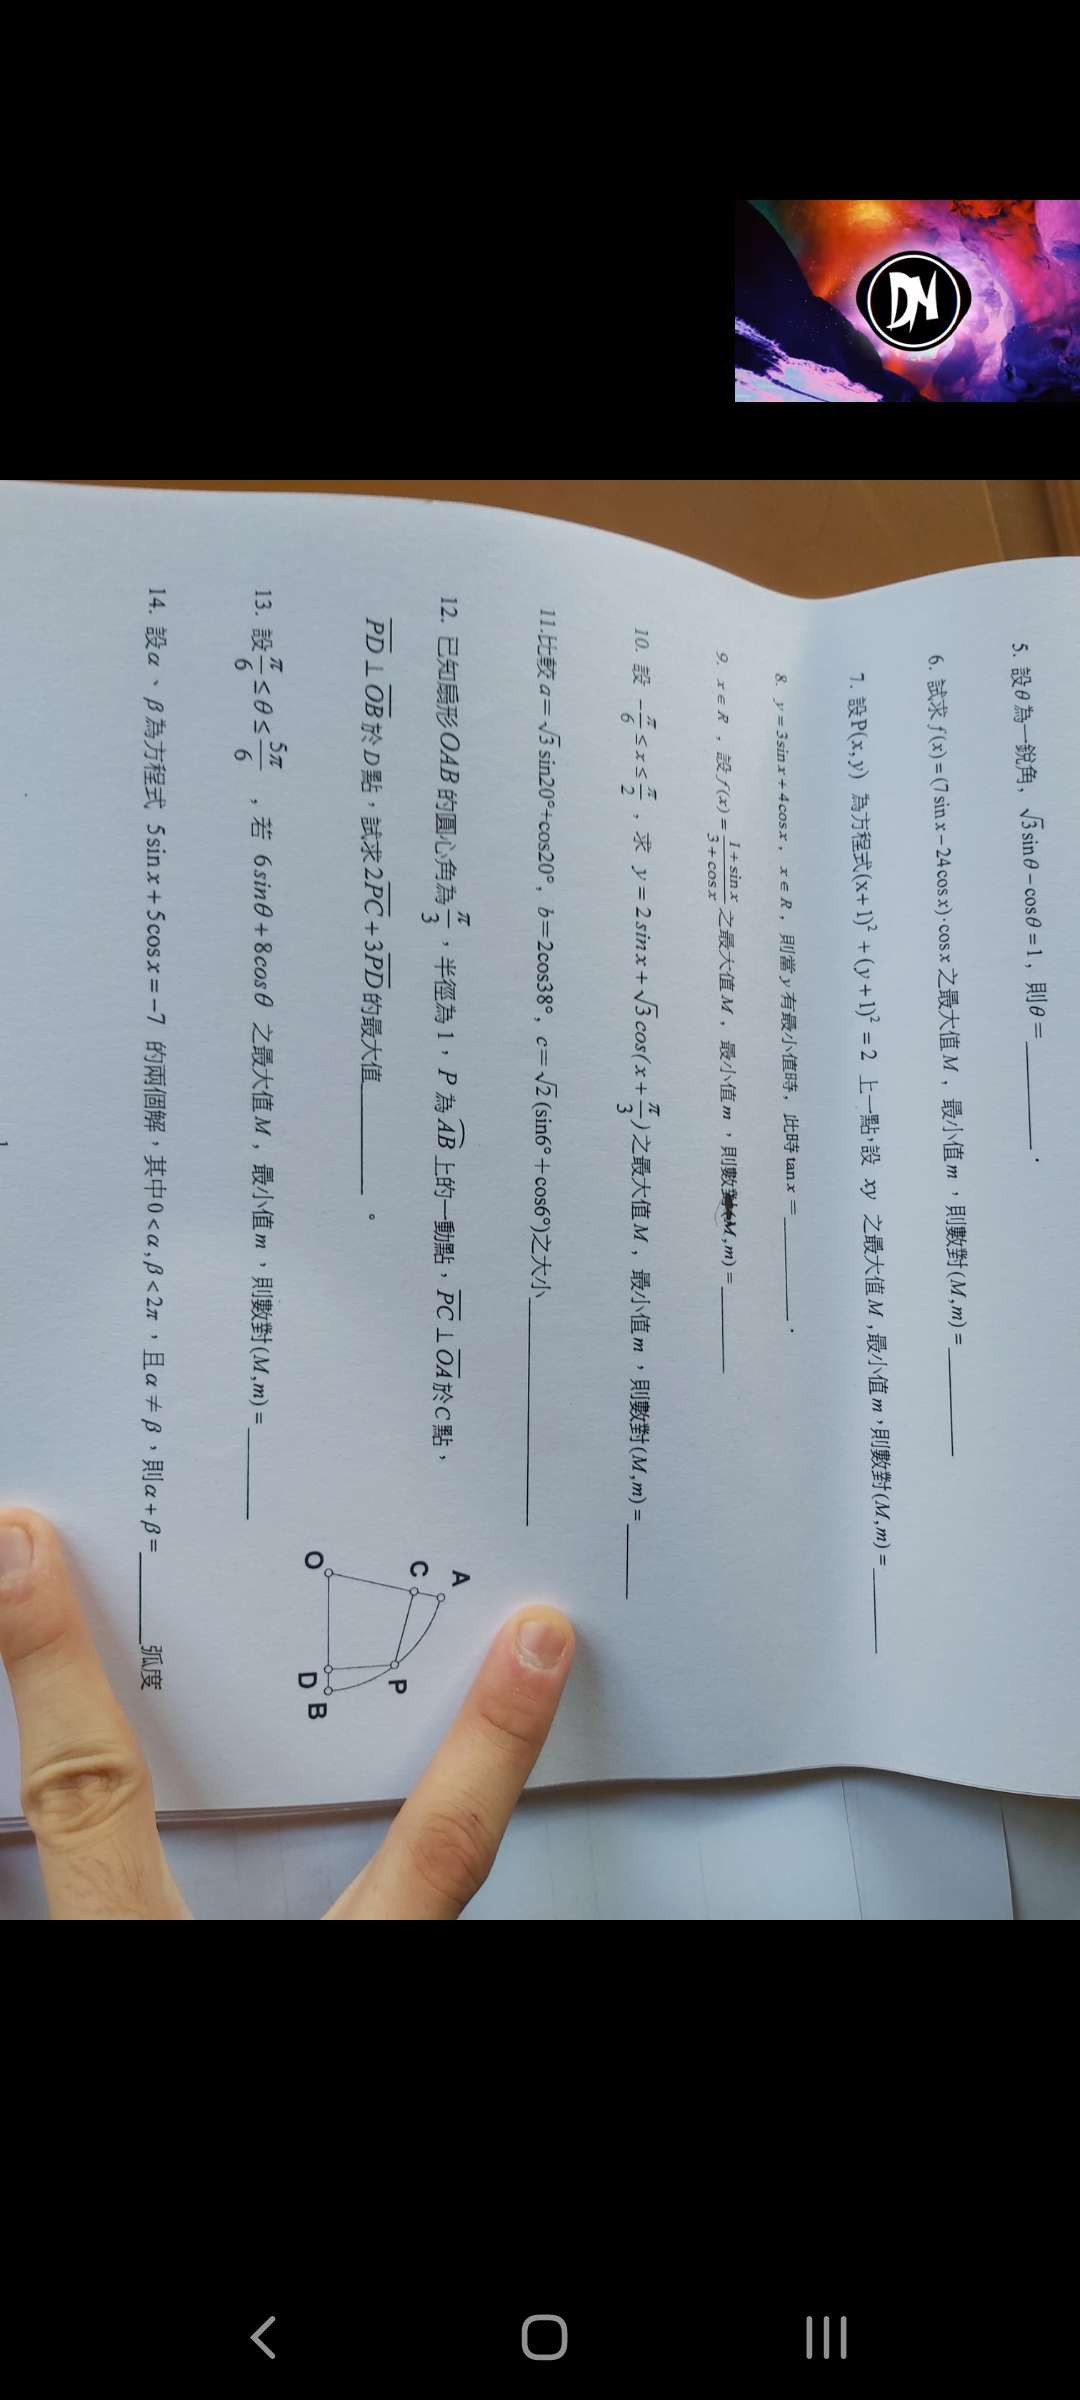 5. 設θ為一銳角，√3 sinθ − cosθ = 1，則θ = ________．
6. 試求 f(x) = (7sin x − 24cos x)·cos x 之最大值M，最小值m，則數對(M,m) = ________
7. 設P(x,y) 為方程式(x+1)² + (y+1)² = 2 上一點，設 xy 之最大值M，最小值m，則數對(M,m) = ________
8. y = 3sin x + 4cos x，x∈R，則當y有最小值時，此時tan x = ________．
9. x∈R，設 f(x) = (1+sin x)/(3+cos x) 之最大值M，最小值m，則數對(M,m) = ________
10. 設 −π/6 ≤ x ≤ π/2，求 y = 2sin x + √3 cos(x + π/3) 之最大值M，最小值m，則數對(M,m) = ________
11.比較 a=√3 sin20°+cos20°，b=2cos38°，c=√2 (sin6°+cos6°)之大小________
12. 已知扇形OAB的圓心角為π/3，半徑為1，P為AB上的一動點，PC⊥OA於C點，
PD⊥OB於D點，試求2PC+3PD的最大值________。
A
C
P
O
D B
13. 設π/6 ≤ θ ≤ 5π/6，若 6sinθ + 8cosθ 之最大值M，最小值m，則數對(M,m) = ________
14. 設α、β為方程式 5sin x + 5cos x = −7 的兩個解，其中0<α,β<2π，且α ≠ β，則α+β = ________弧度
1